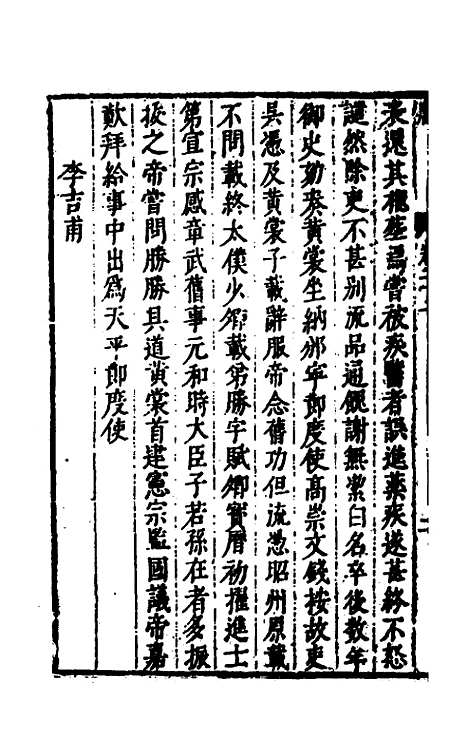 表還其櫬葬焉嘗被疾醫者誤進藥疾遂甚終不怒
譴然除吏不甚別流品通餽謝無絜白名卒後數年
御史劾奏黃裳坐納邠寧即度使高崇文錢按故吏
吳憑及黃裳子載辭服帝念舊功但流憑昭州原載
不問載終太僕少卿載弟勝字賦卿寳曆初擢進士
第宣宗感章武舊事元和時大臣子若孫在者多振
拔之帝嘗問勝勝具道黃裳首建憲宗監國議帝嘉
歎拜給事中出爲天平即度使
李吉甫